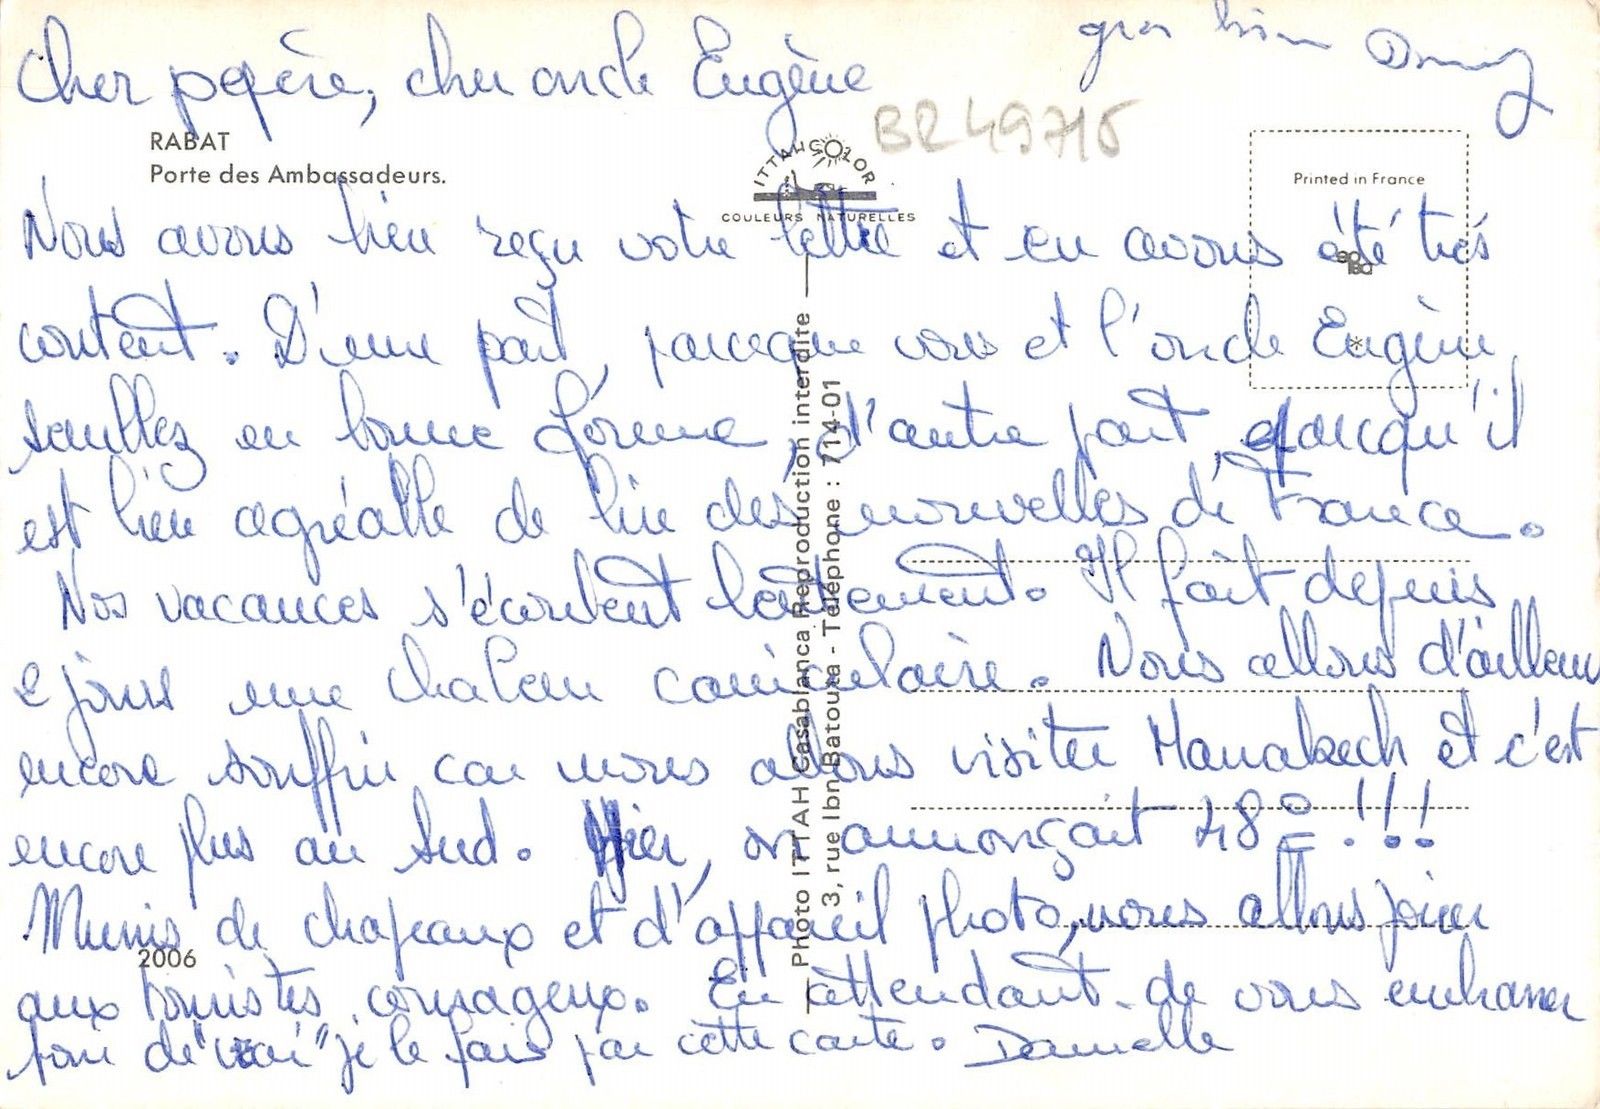 gros bisou
Cher pepère, cher oncle Eugène
BR49715
RABAT
Porte des Ambassadeurs.
ITTAHCOLOR
COULEURS NATURELLES
Printed in France
Nous avons bien reçu votre lettre et en avons été très
content. D'une part, parceque vous et l'oncle Eugène
semblez en bonne forme, d'autre part, parcequ'il
est bien agréable de lire des nouvelles de France.
Nos vacances s'écoulent lentement. Il fait depuis
2 jours une chaleur caniculaire. Nous allons d'ailleurs
encore souffrir car nous allons visiter Marrakech et c'est
encore plus au sud. Hier, on annonçait 48° !!!
Munis de chapeaux et d'appareil photo, nous allons jouer
aux touristes courageux. En attendant de vous embrasser
pour de "vrai" je le fais par cette carte. Danielle
2006
Photo ITTAH Casablanca Reproduction interdite
3, rue Ibn Batouta - Téléphone : 714-01